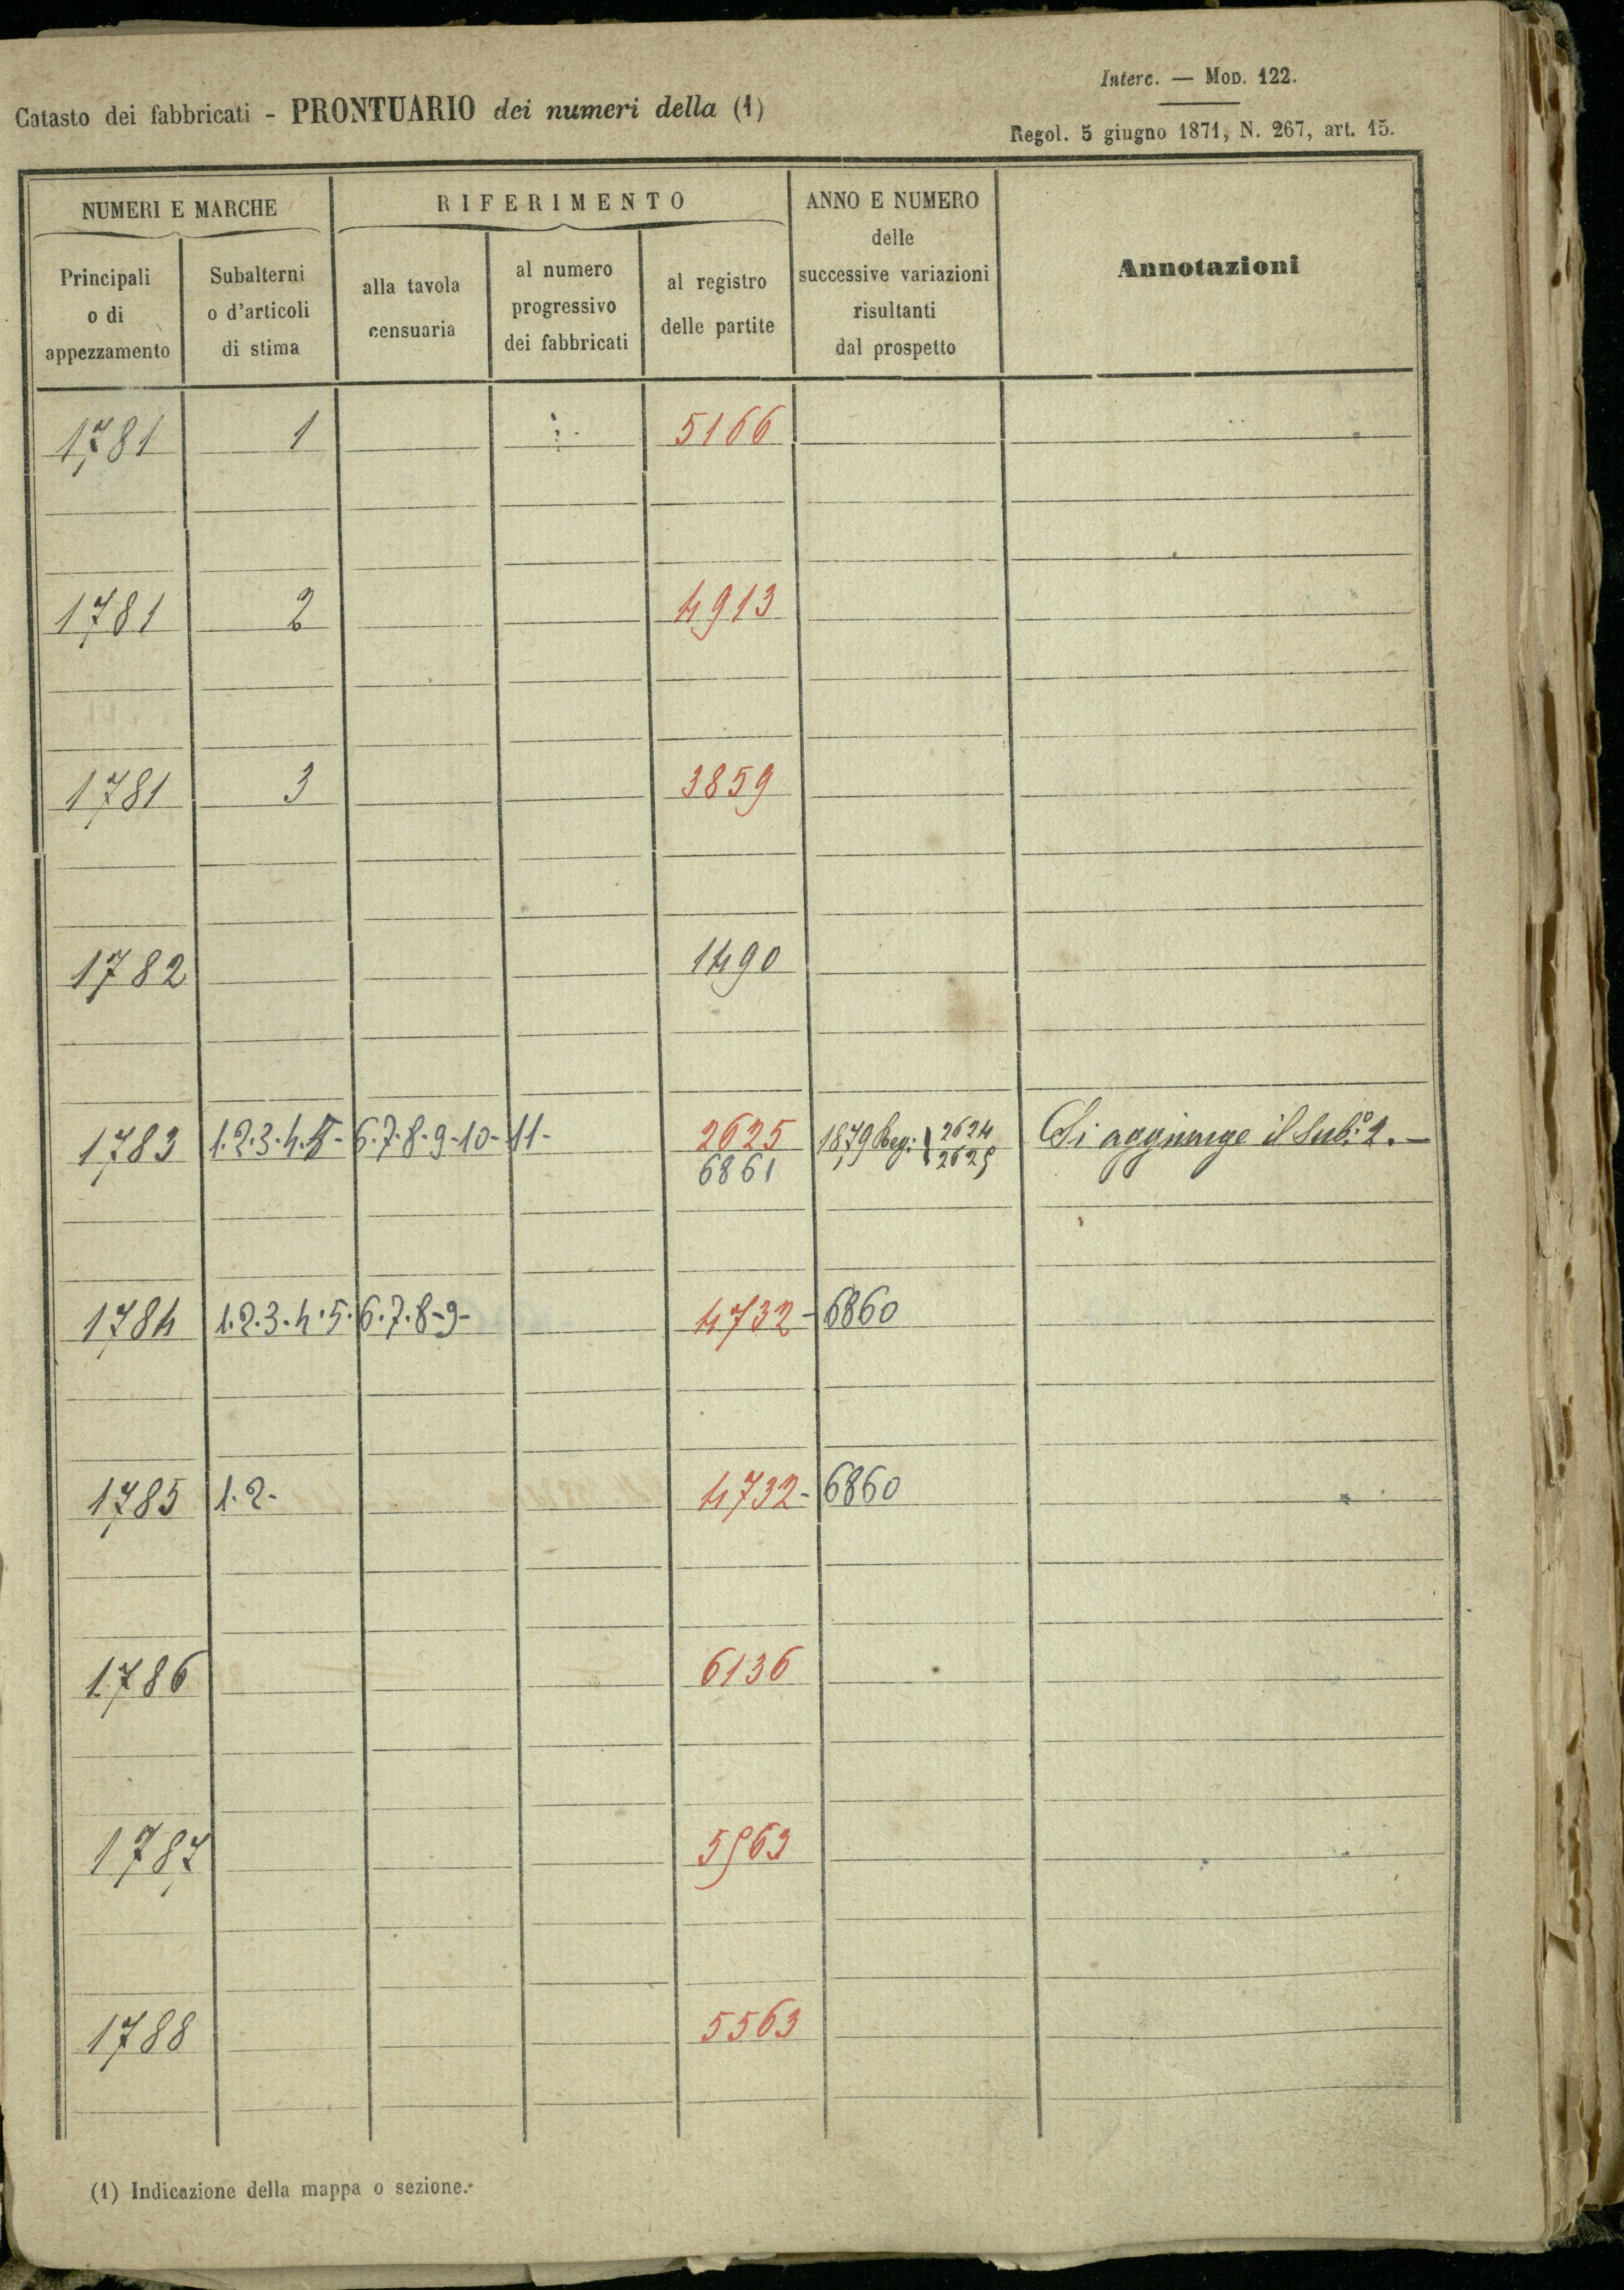 Interc. — Mod. 122.
Catasto dei fabbricati - PRONTUARIO dei numeri della (1)
Regol. 5 giugno 1871, N. 267, art. 15.
NUMERI E MARCHE
RIFERIMENTO
ANNO E NUMERO
delle
successive variazioni
risultanti
dal prospetto
Annotazioni
Principali
o di
appezzamento
Subalterni
o d'articoli
di stima
alla tavola
censuaria
al numero
progressivo
dei fabbricati
al registro
delle partite
1781 1 5166
1781 2 4913
1781 3 3859
1782 1490
1783 1.2.3.4.5- 6.7.8.9-10- 11- 2625 1879 Reg: 2624 Si aggiunge il Sub.º 2.—
6861 2625
1784 1.2.3.4.5. 6.7.8-9- 4732- 6860
1785 1.2- 4732- 6860
1786 6136
1787 5563
1788 5563
(1) Indicazione della mappa o sezione.